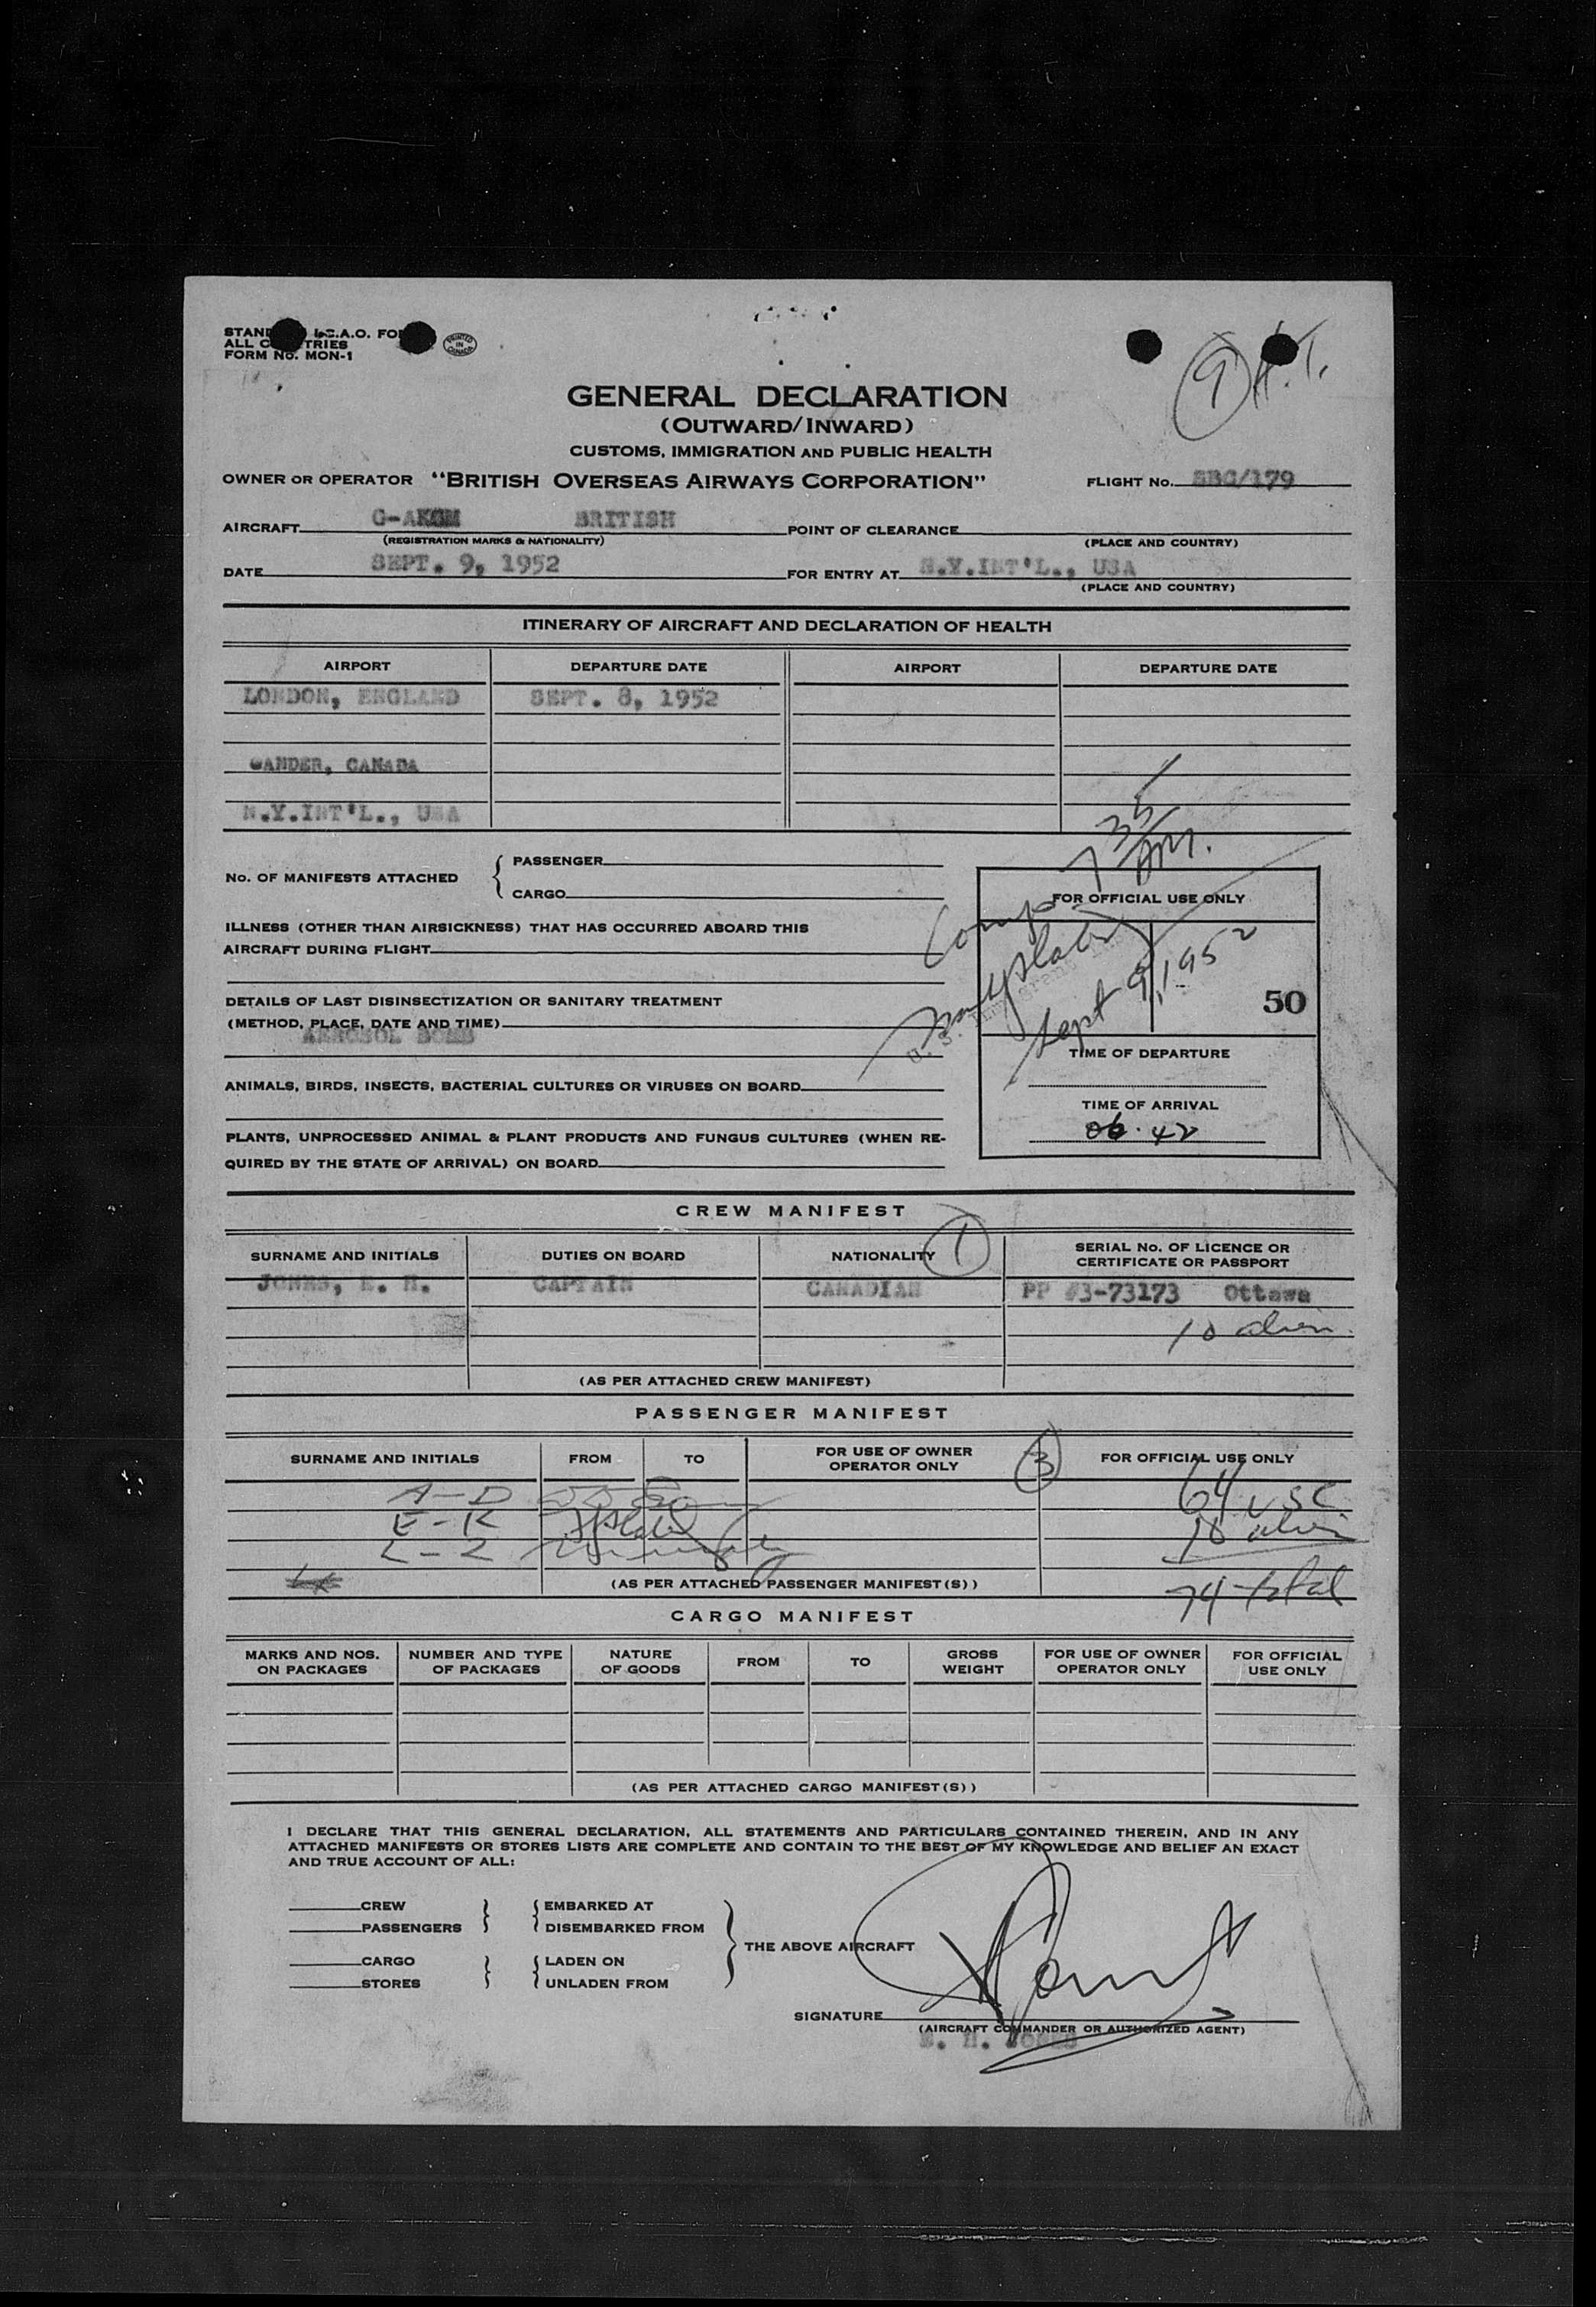 ALL C TRIES
FORM No. MON-1
PRINTED IN CANADA
9 H.T.
GENERAL DECLARATION
(OUTWARD/INWARD)
CUSTOMS, IMMIGRATION AND PUBLIC HEALTH
OWNER OR OPERATOR "BRITISH OVERSEAS AIRWAYS CORPORATION" FLIGHT No. SBC/179
AIRCRAFT BRITISH POINT OF CLEARANCE
(REGISTRATION MARKS & NATIONALITY) (PLACE AND COUNTRY)
DATE SEPT. 9, 1952 FOR ENTRY AT N.Y.INT'L., USA
(PLACE AND COUNTRY)
ITINERARY OF AIRCRAFT AND DECLARATION OF HEALTH
AIRPORT DEPARTURE DATE AIRPORT DEPARTURE DATE
LONDON, ENGLAND SEPT. 8, 1952
GANDER, CANADA
N.Y.INT'L., USA
735
AM.
No. OF MANIFESTS ATTACHED { PASSENGER
CARGO
FOR OFFICIAL USE ONLY
Comp
Sept 9, 1952
50
TIME OF DEPARTURE
TIME OF ARRIVAL
06.42
ILLNESS (OTHER THAN AIRSICKNESS) THAT HAS OCCURRED ABOARD THIS
AIRCRAFT DURING FLIGHT
DETAILS OF LAST DISINSECTIZATION OR SANITARY TREATMENT
(METHOD, PLACE, DATE AND TIME)
AEROSOL BOMB
ANIMALS, BIRDS, INSECTS, BACTERIAL CULTURES OR VIRUSES ON BOARD
PLANTS, UNPROCESSED ANIMAL & PLANT PRODUCTS AND FUNGUS CULTURES (WHEN RE-
QUIRED BY THE STATE OF ARRIVAL) ON BOARD
CREW MANIFEST
SURNAME AND INITIALS DUTIES ON BOARD NATIONALITY 1 SERIAL No. OF LICENCE OR
CERTIFICATE OR PASSPORT
JONES, E. H. CAPTAIN CANADIAN PP #3-73173 Ottawa
10 alien
(AS PER ATTACHED CREW MANIFEST)
PASSENGER MANIFEST
SURNAME AND INITIALS FROM TO FOR USE OF OWNER
OPERATOR ONLY 3 FOR OFFICIAL USE ONLY
A-D 64 USC
E-K 10 alien
L-Z
(AS PER ATTACHED PASSENGER MANIFEST(S)) 74 total
CARGO MANIFEST
MARKS AND NOS.
ON PACKAGES NUMBER AND TYPE
OF PACKAGES NATURE
OF GOODS FROM TO GROSS
WEIGHT FOR USE OF OWNER
OPERATOR ONLY FOR OFFICIAL
USE ONLY
(AS PER ATTACHED CARGO MANIFEST(S))
I DECLARE THAT THIS GENERAL DECLARATION, ALL STATEMENTS AND PARTICULARS CONTAINED THEREIN, AND IN ANY
ATTACHED MANIFESTS OR STORES LISTS ARE COMPLETE AND CONTAIN TO THE BEST OF MY KNOWLEDGE AND BELIEF AN EXACT
AND TRUE ACCOUNT OF ALL:
CREW } { EMBARKED AT
PASSENGERS DISEMBARKED FROM
} THE ABOVE AIRCRAFT
CARGO } { LADEN ON
STORES UNLADEN FROM
SIGNATURE
(AIRCRAFT COMMANDER OR AUTHORIZED AGENT)
E. H. JONES